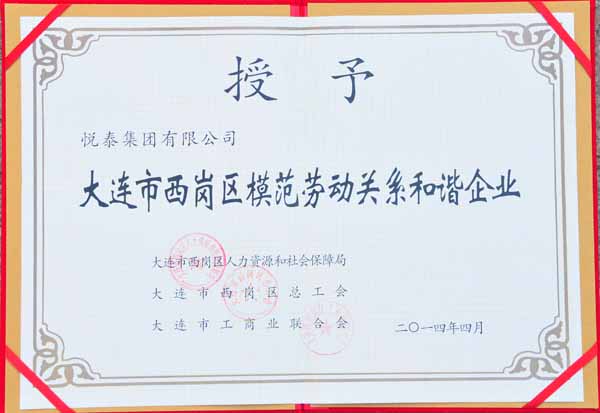 授予
悦泰集团有限公司
大连市西岗区模范劳动关系和谐企业
大连市西岗区人力资源和社会保障局
大连市西岗区总工会
大连市工商业联合会
二〇一四年四月